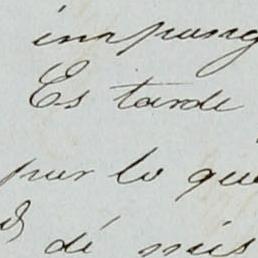 impong
Es tarde
por lo que
dé mis